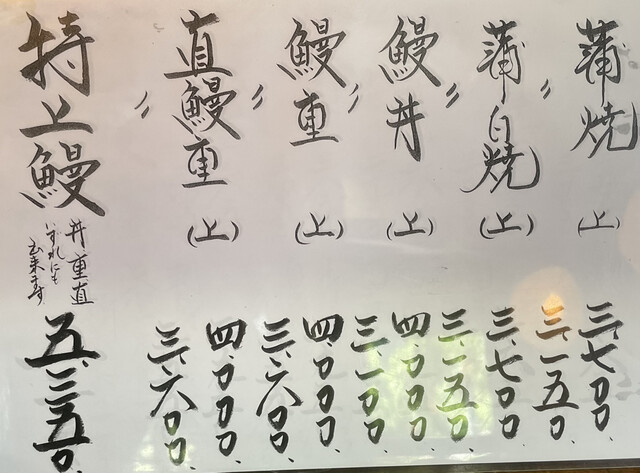 蒲焼（上）三、七〇〇
〃 三、一五〇
蒲白焼（上）三、七〇〇
〃 三、一五〇
鰻丼（上）四、〇〇〇
〃 三、一〇〇
鰻重（上）四、〇〇〇
〃 三、六〇〇
直鰻重（上）四、〇〇〇
〃 三、六〇〇
特上鰻
丼重直
いずれにも
出来ます
五、三五〇